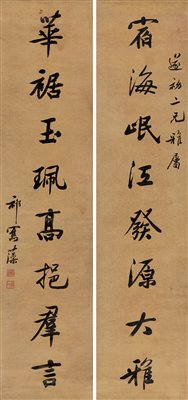 宿海岷江發源大雅
初二兄雅屬
華裾玉珮高挹羣言
祁寯藻